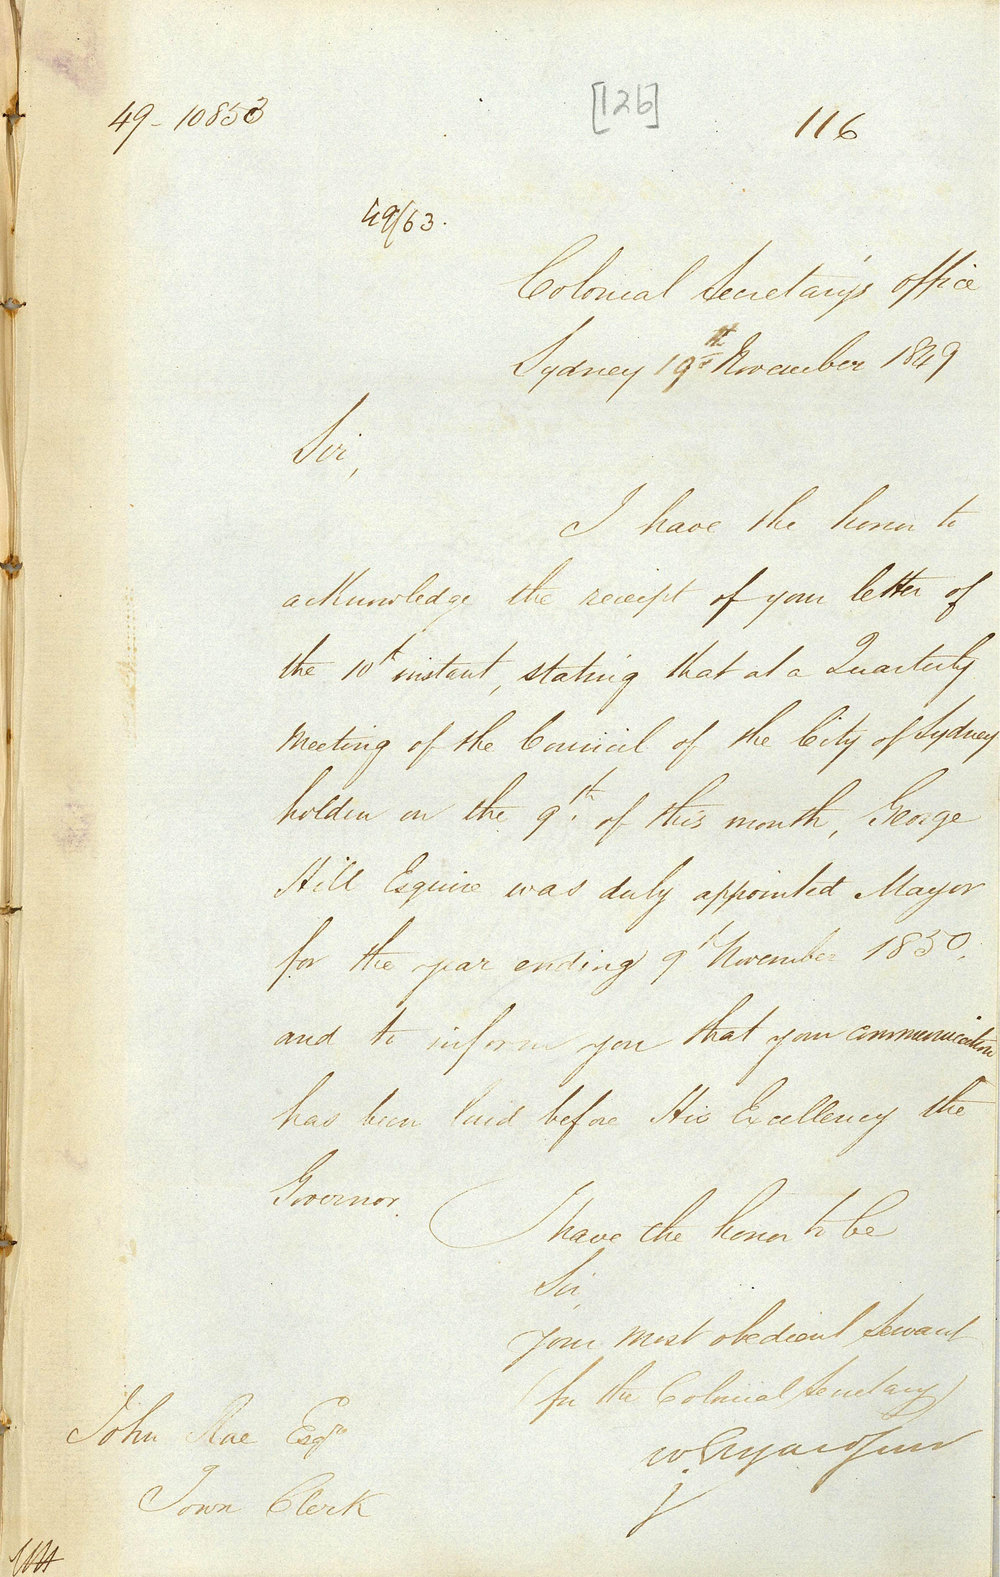 49-10853
[126]
116
49/63.
Colonial Secretary's office
Sydney 19th November 1849
Sir,
I have the honor to
acknowledge the receipt of your letter of
the 10th instant, stating that at a Quarterly
Meeting of the Council of the City of Sydney
holden on the 9th. of this month, George
Hill Esquire was duly appointed Mayor
for the year ending 9th November 1850.
and to inform you that your communication
has been laid before His Excellency the
Governor.
I have the honor to be
Sir,
Your most obedient Servant
(for the Colonial Secretary)
W.
John Rae Esqre
Town Clerk